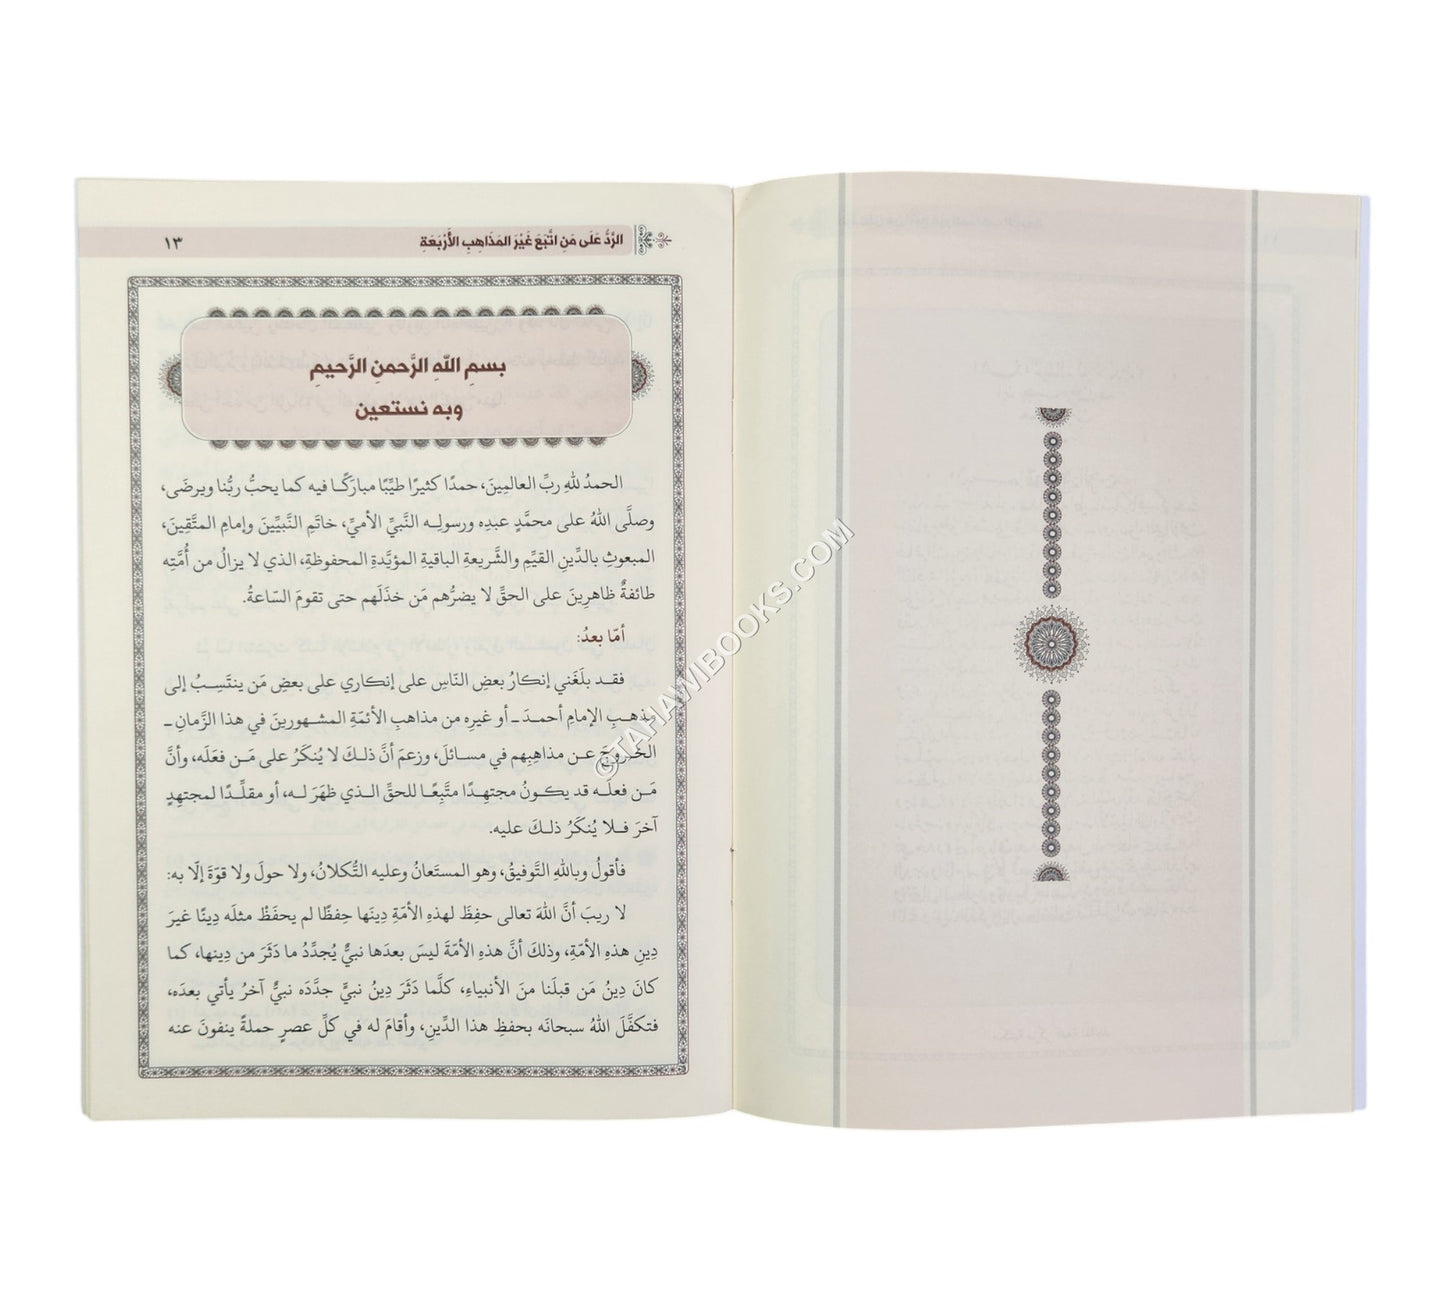 الرَّدُّ عَلَى مَنِ اتَّبَعَ غَيْرَ المَذَاهِبِ الأَرْبَعَةِ ١٣
بسمِ اللّٰهِ الرَّحمنِ الرَّحيمِ
وبه نستعين
الحمدُ للهِ ربِّ العالمِينَ، حمدًا كثيرًا طيِّبًا مبارَكًا فيه كما يحبُّ ربُّنا ويرضَى،
وصلَّى اللهُ على محمَّدٍ عبدِه ورسولِه النَّبيِّ الأميِّ، خاتَمِ النَّبيِّينَ وإمامِ المتَّقِينَ،
المبعوثِ بالدِّينِ القيِّمِ والشَّريعةِ الباقيةِ المؤيَّدةِ المحفوظةِ، الذي لا يزالُ من أُمَّتِه
طائفةٌ ظاهرِينَ على الحقِّ لا يضرُّهم مَن خذَلَهم حتى تقومَ السّاعةُ.
أمّا بعدُ:
فقد بلَغَني إنكارُ بعضِ النّاسِ على إنكاري على بعضِ مَن ينتَسِبُ إلى
مذهبِ الإمامِ أحمدَ ـ أو غيرِه من مذاهبِ الأئمّةِ المشهورينَ في هذا الزَّمانِ ـ
الخروجَ عن مذاهِبِهم في مسائلَ، وزعمَ أنَّ ذلكَ لا يُنكَرُ على مَن فعَلَه، وأنَّ
مَن فعلَه قد يكونُ مجتهِدًا متَّبِعًا للحقِّ الذي ظهَرَ له، أو مقلِّدًا لمجتهِدٍ
آخرَ فلا يُنكَرُ ذلكَ عليه.
فأقولُ وباللهِ التَّوفيقُ، وهو المستَعانُ وعليه التُّكلانُ، ولا حولَ ولا قوّةَ إلّا به:
لا ريبَ أنَّ اللهَ تعالى حفِظَ لهذهِ الأمّةِ دِينَها حِفظًا لم يحفَظْ مثلَه دِينًا غيرَ
دِينِ هذهِ الأمّةِ، وذلكَ أنَّ هذهِ الأمّةَ ليسَ بعدَها نبيٌّ يُجدِّدُ ما دَثَرَ من دِينِها، كما
كانَ دِينُ مَن قبلَنا منَ الأنبياءِ، كلَّما دَثَرَ دِينُ نبيٍّ جدَّدَه نبيٌّ آخرُ يأتي بعدَه،
فتكفَّلَ اللهُ سبحانَه بحفظِ هذا الدِّينِ، وأقامَ له في كلِّ عصرٍ حملةً ينفونَ عنه
©TAHAWIBOOKS.COM